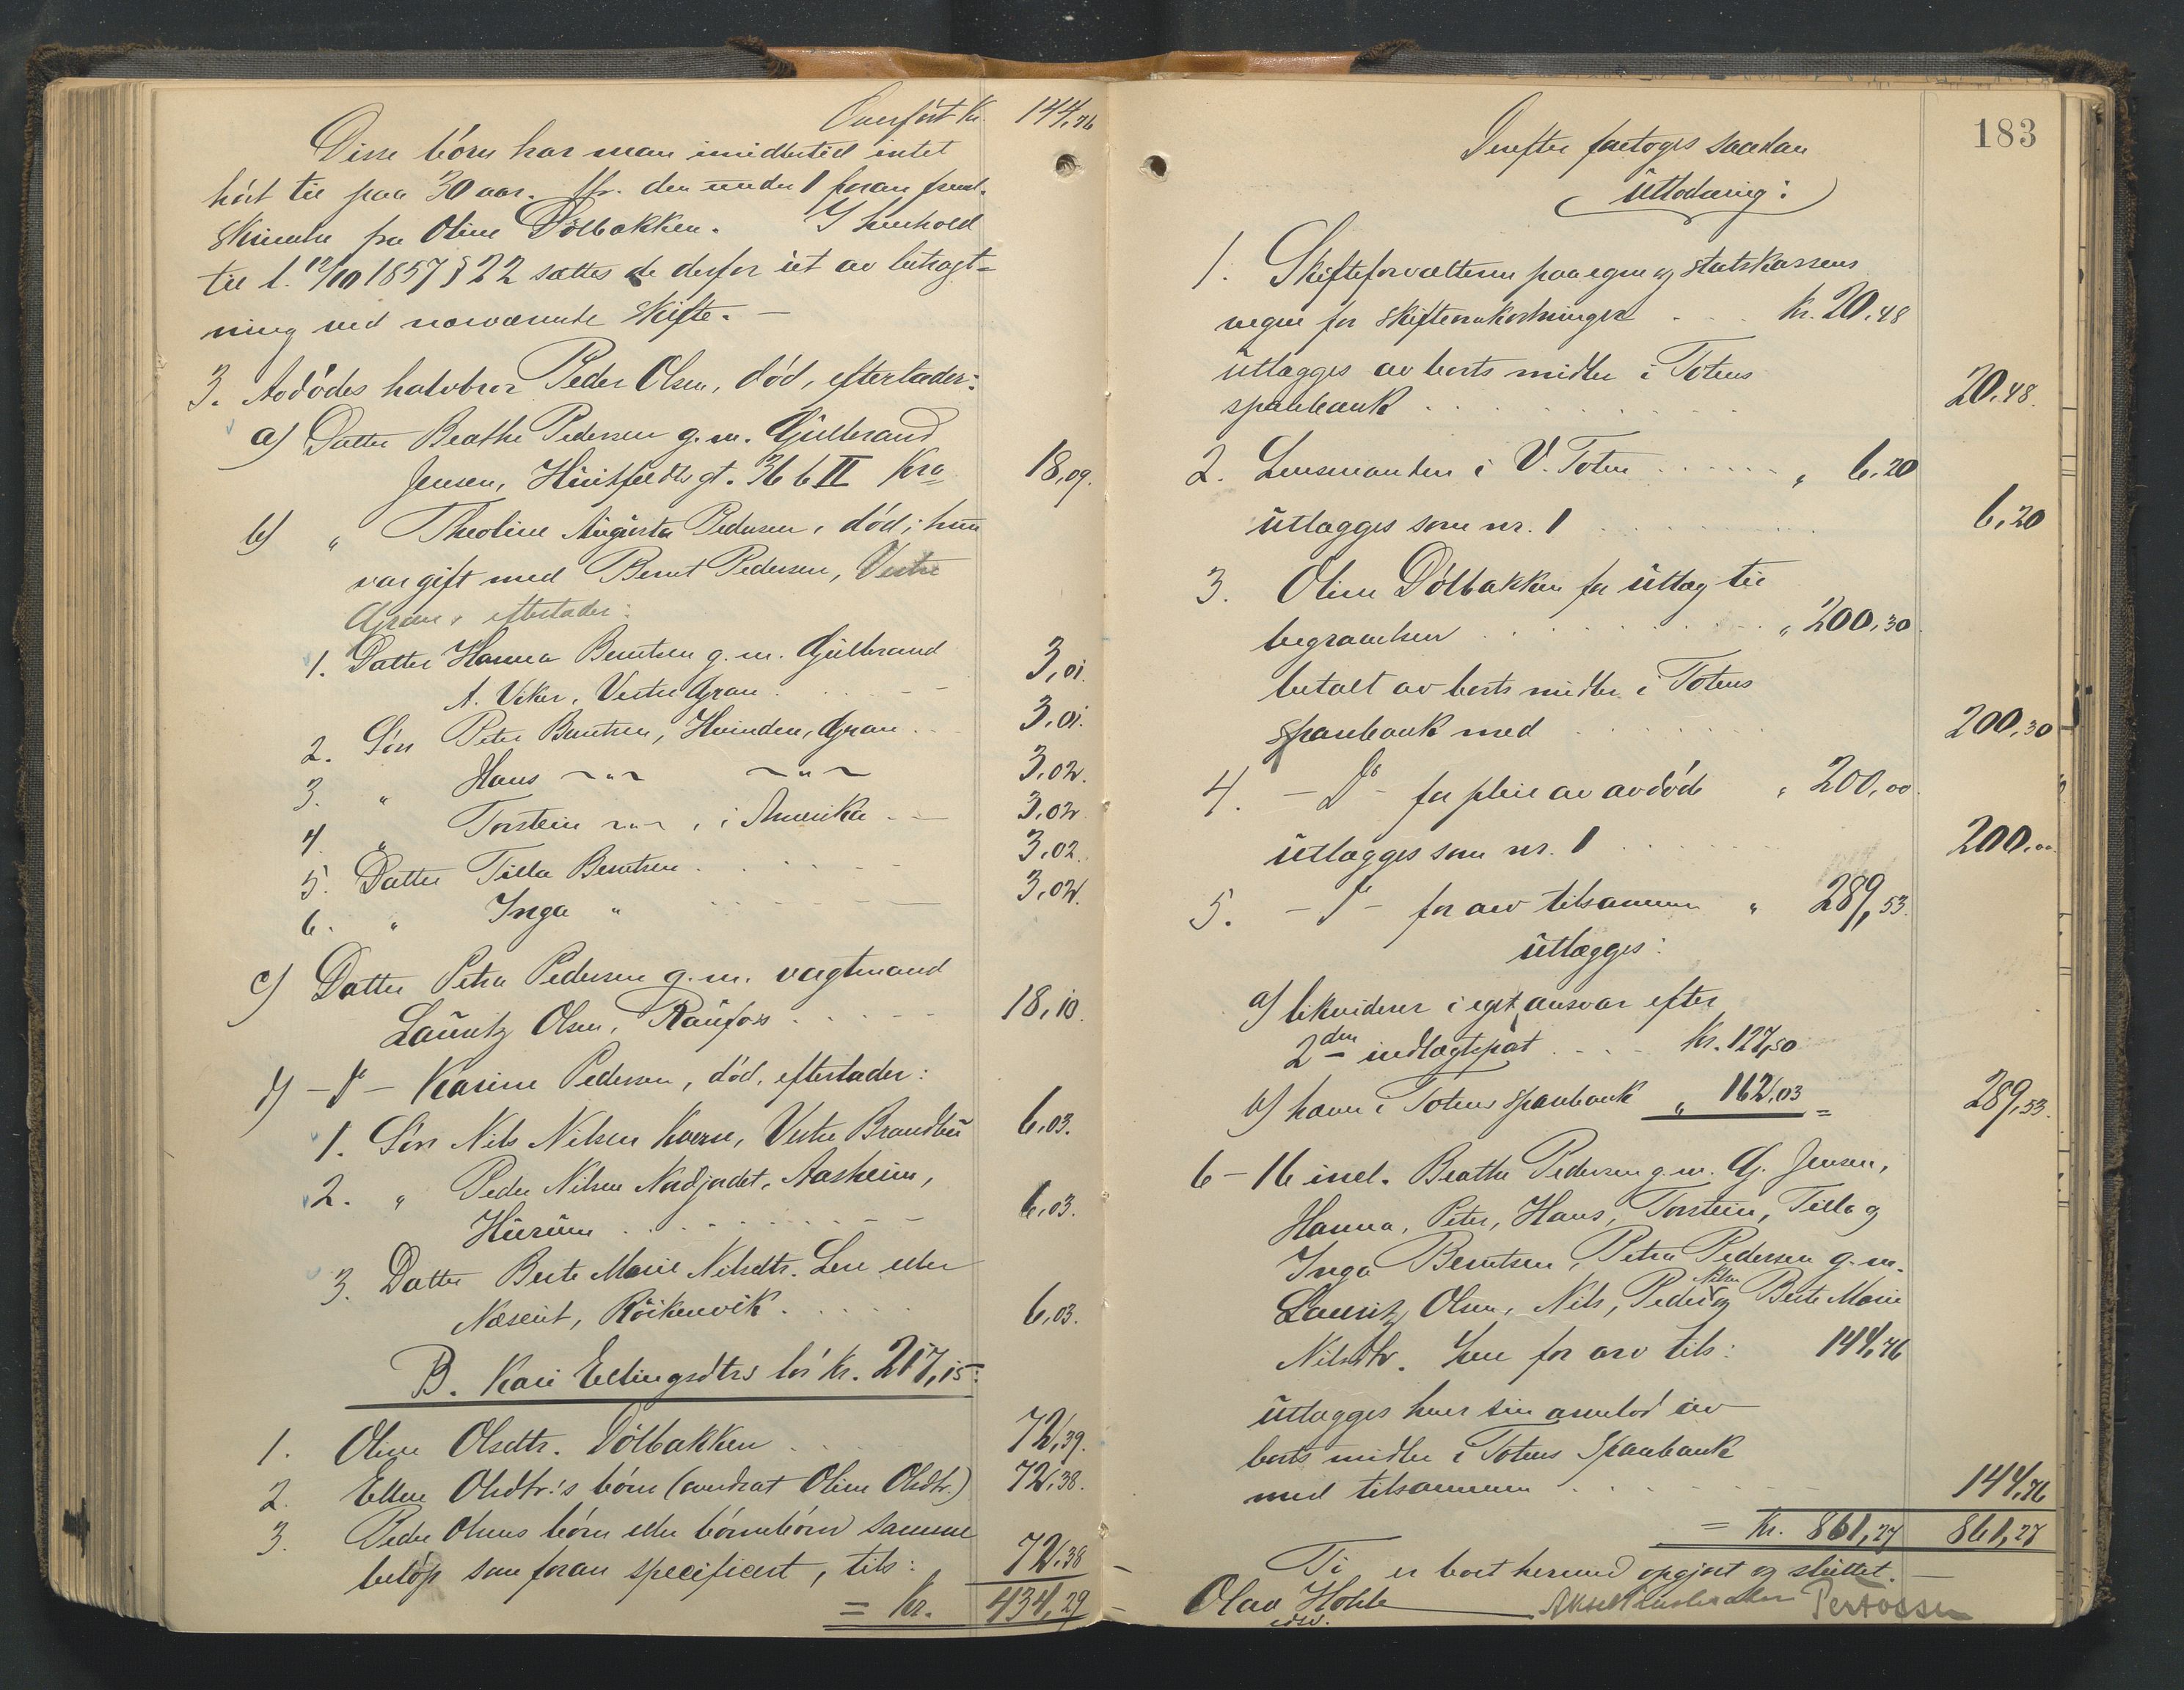 Overført Kr. 144,76
Disse börn har man imidlertid intet
hört til paa 30 aar. Jfr. den under 1 foran frem-
skrivelse fra Oline Dölbakken. I henhold
til l. 12/10 1857 § 22 sættes de derfor ut av betragt-
ning ved nærværende skifte. –
3. Avdödes halvbror Peder Olsen, död, efterlader:
a) Datter Beathe Pedersen g.m. Gulbrand
Jensen, Huitfeldts gt. 36 b II Kra 18,09.
b) " Theoline Augusta Pedersen, död; hun
var gift med Bernt Pedersen, Vestre
Gran, efterlader:
1. Datter Hanna Berntsen g.m. Gulbrand
A. Viker, Vestre Gran 3,01.
2. Sön Peter Berntsen, Hvinden, Gran 3,01.
3. " Hans –"– –"– 3,02.
4. " Torstein –"–, i Amerika 3,02
5. Datter Tilla Berntsen 3,02.
6. " Inga " 3,02.
c) Datter Petra Pedersen g.m. vagtmand
Lauritz Olsen, Raufoss 18,10.
d) – Do – Karine Pedersen, död, efterlader:
1. Sön Nils Nilsen Kværn, Vestre Brandbu 6,03.
2. " Peder Nilsen Nordjordet, Aasheim,
Hurum 6,03.
3. Datter Berte Marie Nilsdtr. Lere eller
Næsent, Röikenvik 6,03.
B. Kari Ellingsdtrs lod Kr. 217,15:
1. Oline Olsdtr. Dölbakken 72,39.
2. Ellen Olsdtr.'s börn (undtat Oline Olsdtr.) 72,38.
3. Peder Olsens börn eller börnebörn samme
belöp som foran specificert, tils: 72,38
= Kr. 434,29
183
Derefter foretoges saadan
Utlodning:
1. Skifteforvalteren paa egne og statskassens
vegne for skifteomkostninger Kr. 20,48
utlægges av boets midler i Totens
sparebank 20,48.
2. Lensmanden i V. Toten " 6,20
utlægges som nr. 1 6,20
3. Oline Dölbakken for utlæg til
begravelsen " 200,30
betalt av boets midler i Totens
sparebank med 200,30
4. – Do – for pleie av avdöde " 200,00.
utlægges som nr. 1 200,00
5. – Do – for arv tilsammen " 289,53.
utlægges:
a) likviderer i eget ansvar efter
2den indlagtepost Kr. 127,50
b) haves i Totens sparebank " 162,03 = 289,53.
6 – 16 incl. Beathe Pedersen g.m. G. Jensen,
Hanna, Peter, Hans, Torstein, Tilla og
Inga Berntsen, Petra Pedersen g.m.
Lauritz Olsen, Nils, Peder Nilsen og Berte Marie
Nilsdtr. Lere for arv tils: 144,76
utlægges hver sin arvelod av
boets midler i Totens Sparebank
med tilsammen 144,76
= Kr. 861,27 861,27
Ti er boet hermed opgjort og sluttet.
Olav Hohle
edsv.